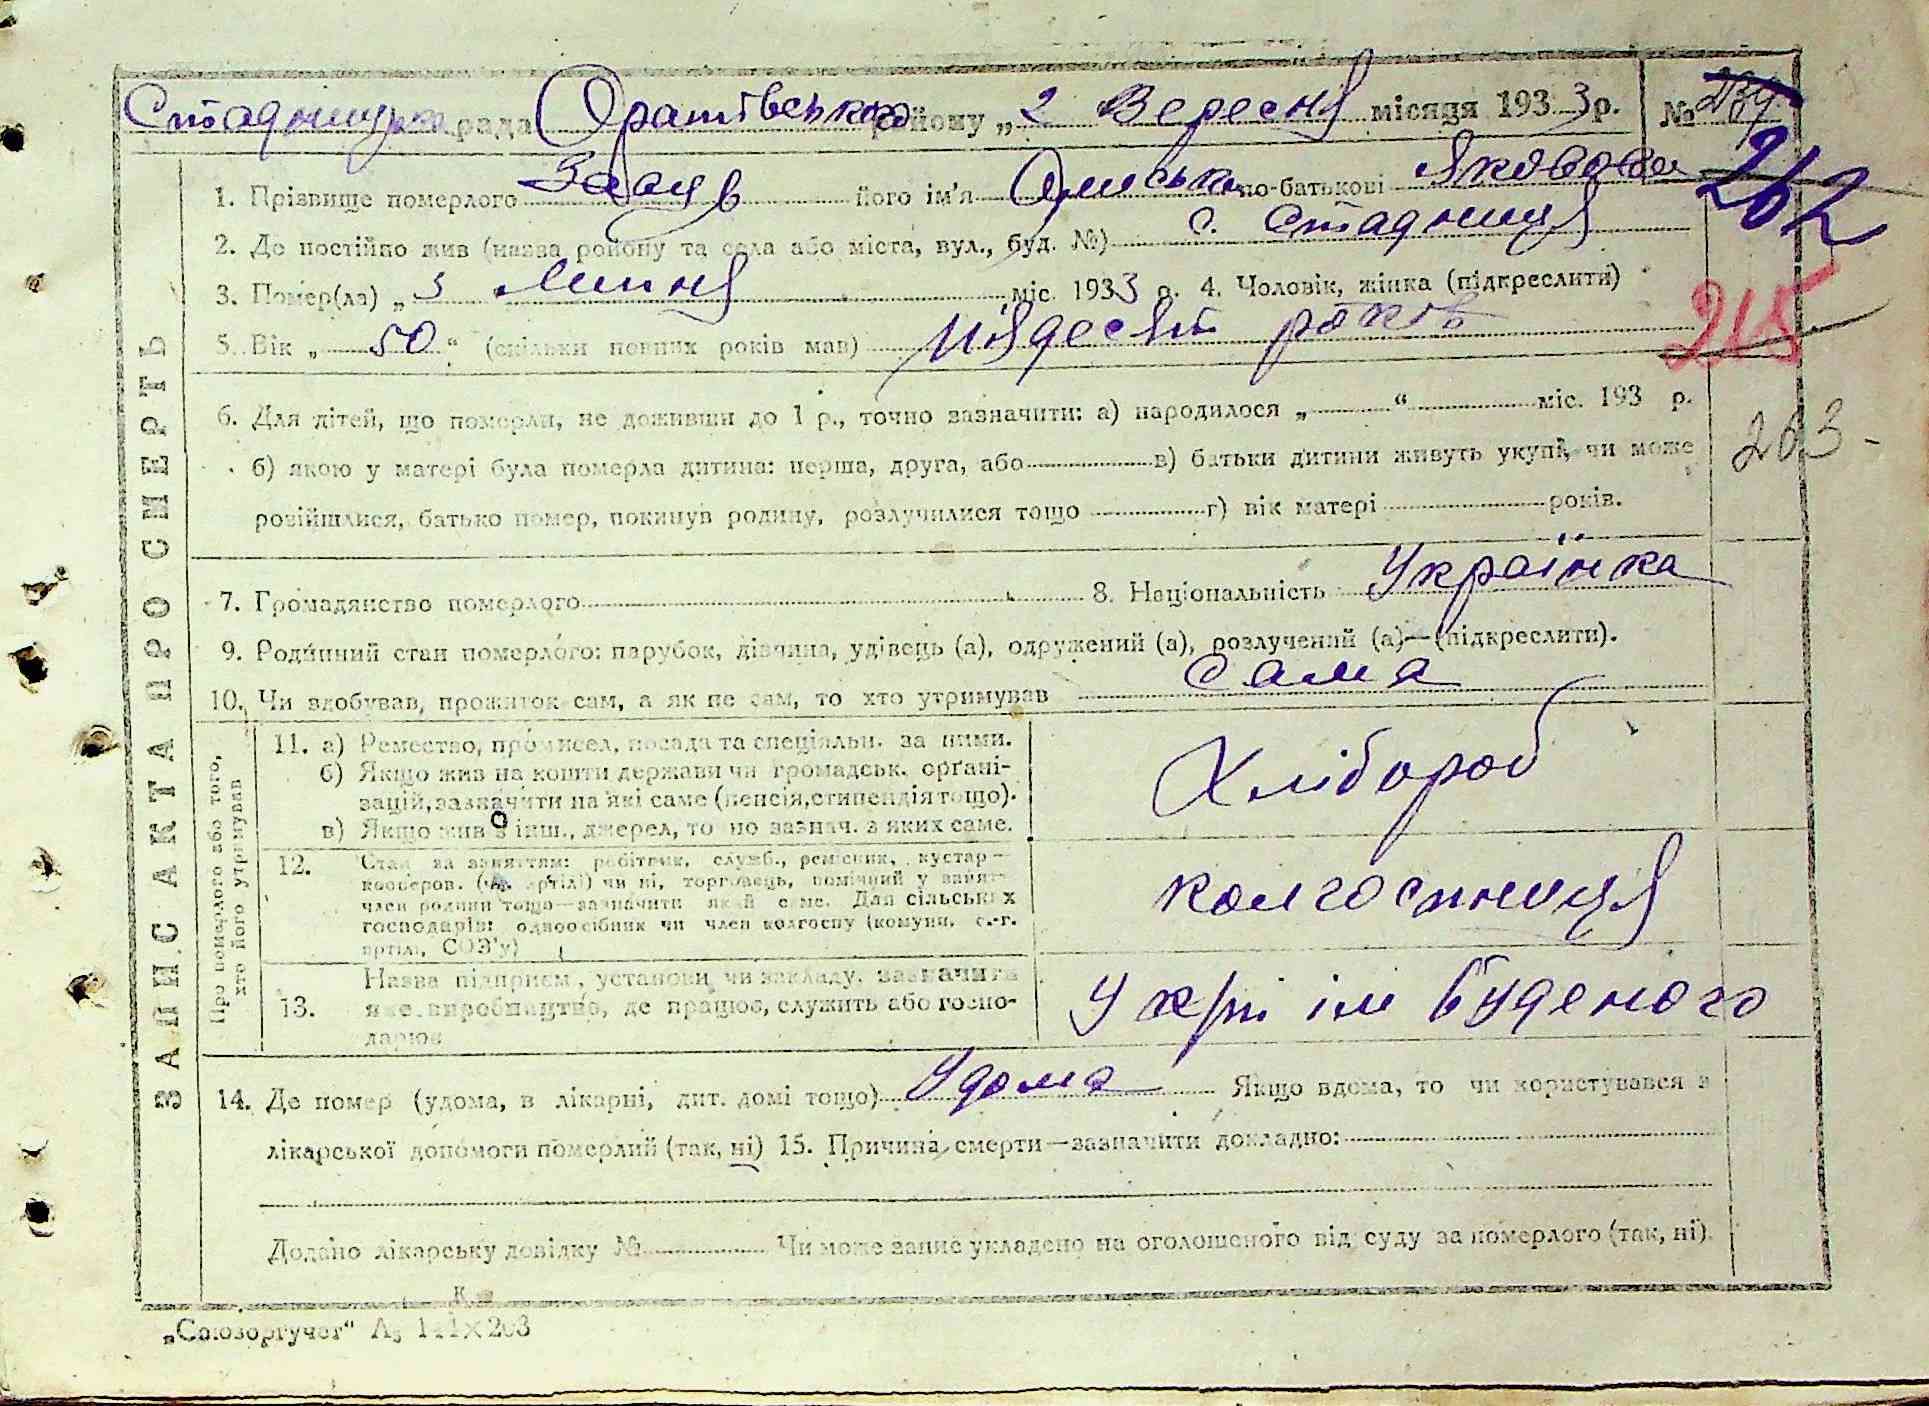 Стадницька рада Оратівського району „ 2 Вересня місяця 1933 р. №
262
1. Прізвище померлого його ім'я по-батькові Яковова
2. Де постійно жив (назва району та села або міста, вул., буд. №) с. Стадниця
3. Помер(ла) „ 3 Липня міс. 1933 р. 4. Чоловік, жінка (підкреслити)
215
5. Вік „ 50 “ (скільки повних років мав) піядесят років
6. Для дітей, що померли, не доживши до 1 р., точно зазначити: а) народилося „ “ міс. 193 р.
263 -
б) якою у матері була померла дитина: перша, друга, або в) батьки дитини живуть укупі, чи може
розійшлися, батько помер, покинув родину, розлучилися тощо г) вік матері років.
7. Громадянство померлого 8. Національність Українка
9. Родинний стан померлого: парубок, дівчина, удівець (а), одружений (а), розлучений (а)—(підкреслити).
10. Чи здобував, прожиток сам, а як не сам, то хто утримував сама
ЗАПИС АКТА ПРО СМЕРТЬ
Про померлого або того,
хто його утримував
11. а) Ремество, промисел, посада та спеціяльн. за ними.
б) Якщо жив на кошти держави чи громадськ. орґані-
зацій, зазначити на які саме (пенсія, стипендія тощо).
в) Якщо жив з інш., джерел, то но зазнач. з яких саме.
Хлібороб
12. Стан за заняттям: робітник, служб., ремісник, кустар-
кооперов. (чл. артілі) чи ні, торговець, помічний у занят.
член родини тощо—зазначити який саме. Для сільських
господарів: одноосібник чи член колгоспу (комуни, с.-г.
артілі, СОЗ'у)
колгоспниця
13. Назва підприєм., установи, чи закладу, зазначити
яке виробництво, де працює, служить або госпо-
дарює
У ім Буденого
14. Де помер (удома, в лікарні, дит. домі тощо) Удома Якщо вдома, то чи користувався з
лікарської допомоги померлий (так, ні) 15. Причина смерти—зазначити докладно:
Додано лікарську довідку № Чи може запис укладено на оголошеного від суду за померлого (так, ні).
„Союзоргучет“